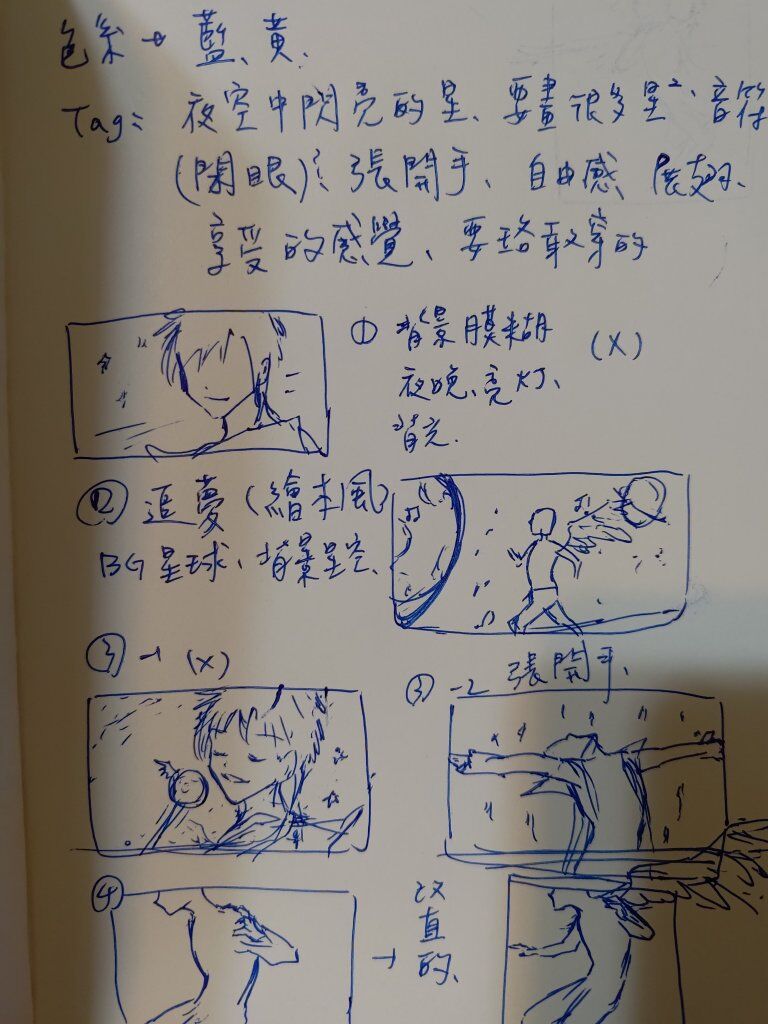 色系→ 藍、黃、
Tag: 夜空中閃亮的星、要畫很多星²、音符
(閉眼)?、張開手、自由感、展翅、
享受的感覺、要路敢穿的
① 背景膜糊 (X)
夜晚、亮灯、
背光.
② 追夢 (繪本風)
BG星球、背景星空、
③-1 (X)
③-2 張開手、
④ → 改直的、